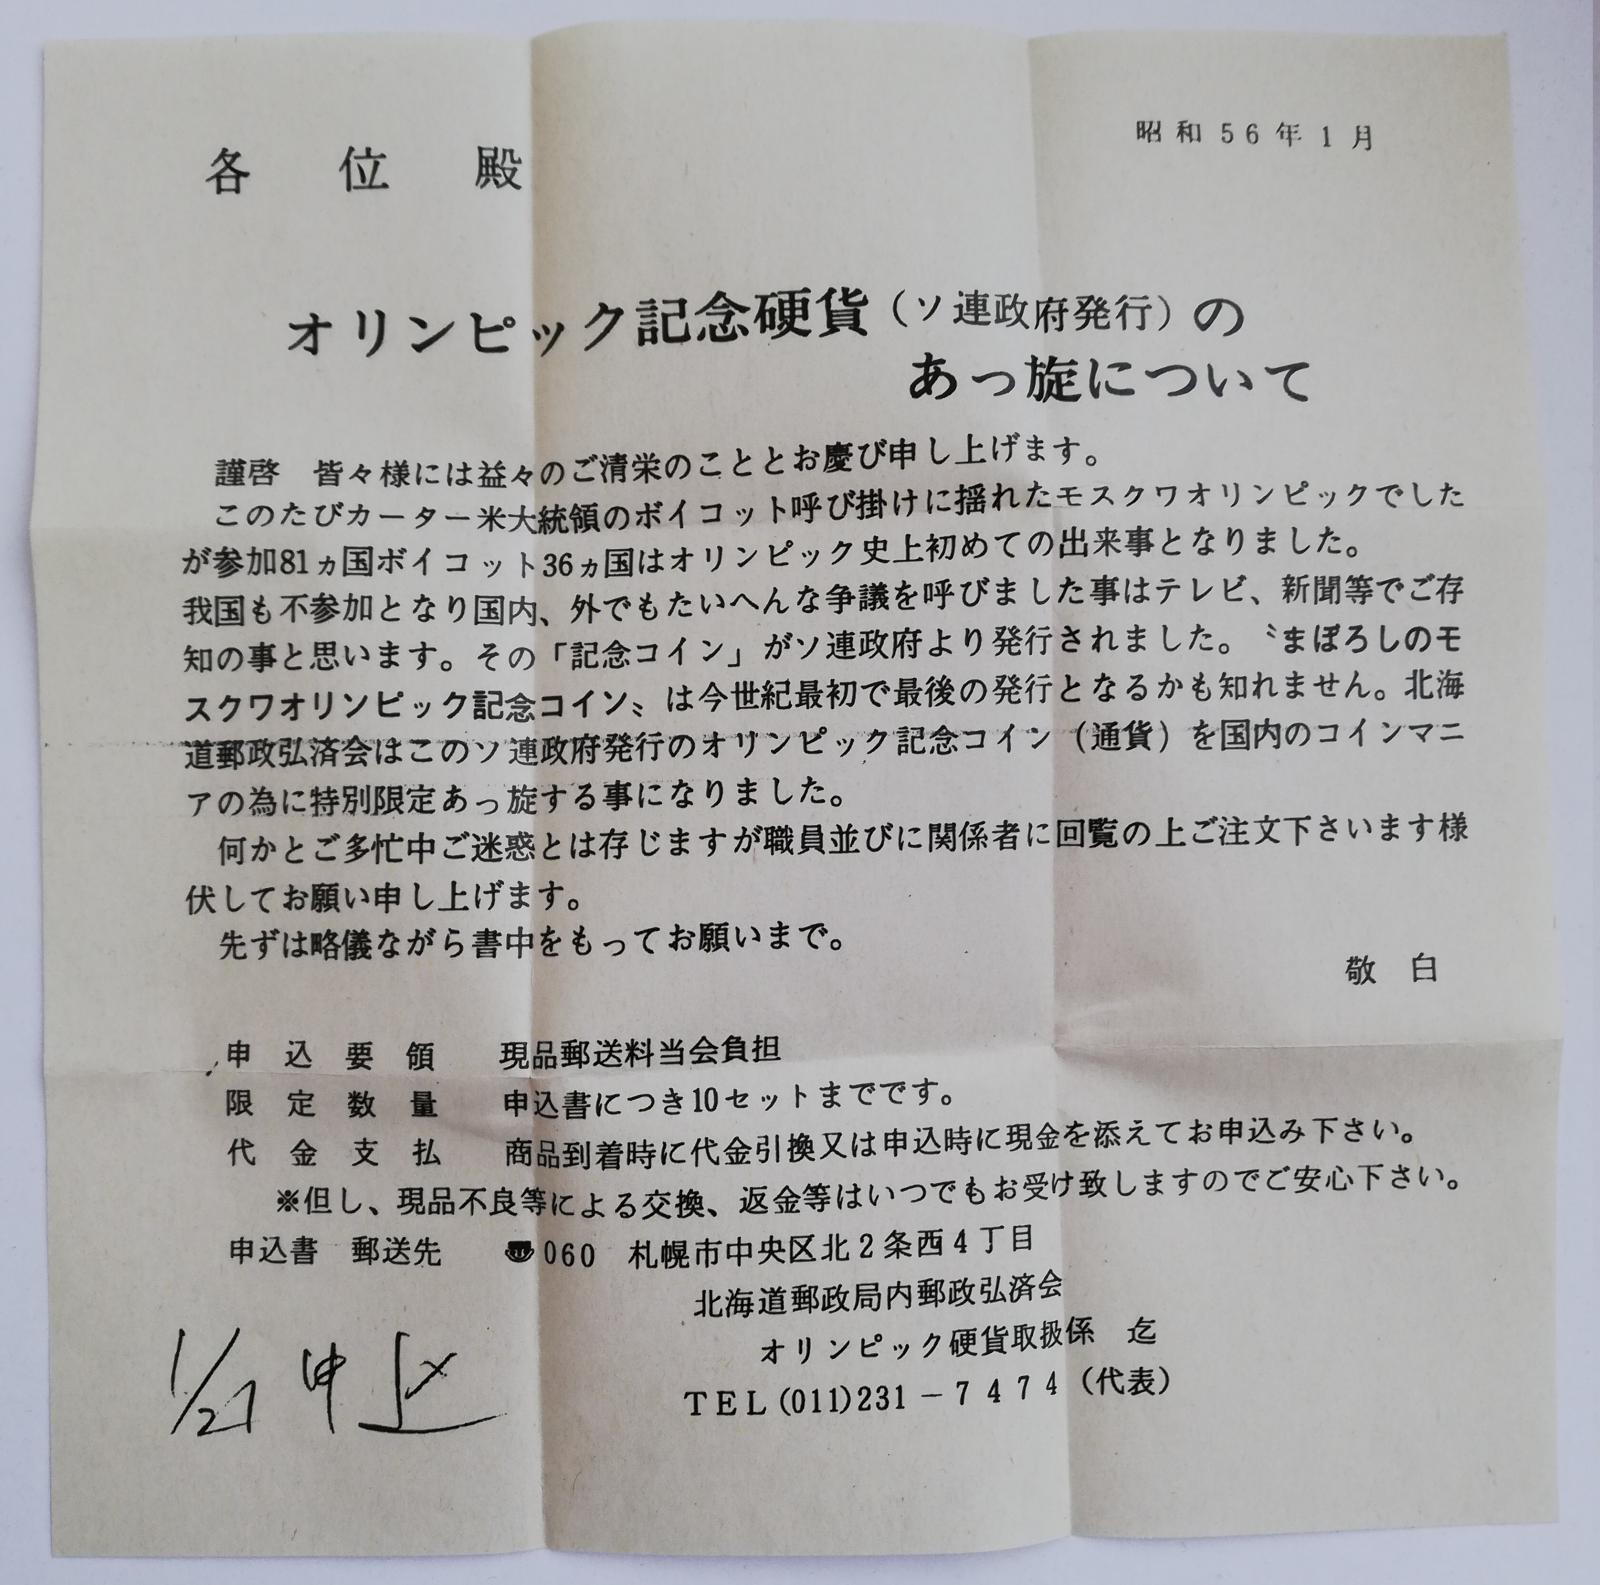 昭和56年1月
各位殿
オリンピック記念硬貨（ソ連政府発行）の
あっ旋について
謹啓　皆々様には益々のご清栄のこととお慶び申し上げます。
このたびカーター米大統領のボイコット呼び掛けに揺れたモスクワオリンピックでした
が参加81ヵ国ボイコット36ヵ国はオリンピック史上初めての出来事となりました。
我国も不参加となり国内、外でもたいへんな争議を呼びました事はテレビ、新聞等でご存
知の事と思います。その「記念コイン」がソ連政府より発行されました。〝まぼろしのモ
スクワオリンピック記念コイン〟は今世紀最初で最後の発行となるかも知れません。北海
道郵政弘済会はこのソ連政府発行のオリンピック記念コイン（通貨）を国内のコインマニ
アの為に特別限定あっ旋する事になりました。
何かとご多忙中ご迷惑とは存じますが職員並びに関係者に回覧の上ご注文下さいます様
伏してお願い申し上げます。
先ずは略儀ながら書中をもってお願いまで。
敬白
申込要領　現品郵送料当会負担
限定数量　申込書につき10セットまでです。
代金支払　商品到着時に代金引換又は申込時に現金を添えてお申込み下さい。
※但し、現品不良等による交換、返金等はいつでもお受け致しますのでご安心下さい。
申込書　郵送先　〠060　札幌市中央区北2条西4丁目
北海道郵政局内郵政弘済会
オリンピック硬貨取扱係　迄
TEL(011)231－7474（代表）
1/27 申込